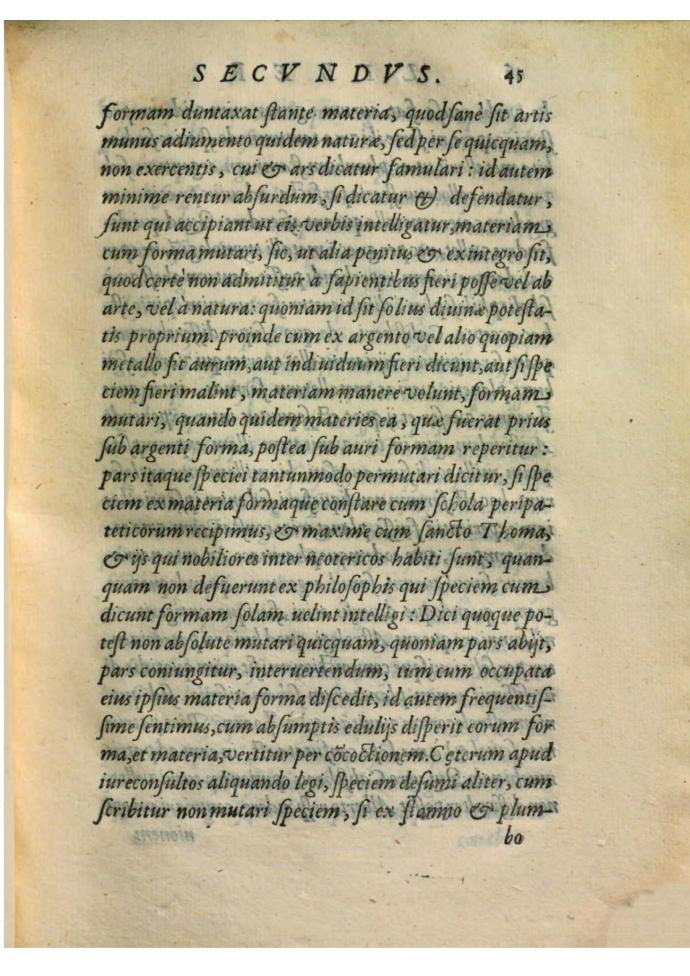 SECVNDVS. 45
formam duntaxat ſtante materia, quod ſanè ſit artis
munus adiumento quidem naturæ, ſed per ſe quicquam,
non exercentis, cui & ars dicatur famulari: id autem
minime rentur abſurdum, ſi dicatur & defendatur,
ſunt qui accipiant ut eis verbis intelligatur, materiam
cum forma mutari, ſic, ut alia penitus & ex integro ſit,
quod certè non admititur à ſapientibus fieri poſſe vel ab
arte, vel à natura: quoniam id ſit ſolius diuinæ poteſta-
tis proprium: proinde cum ex argento vel alio quopiam
metallo fit aurum, aut indiuiduum fieri dicunt, aut ſi ſpe
ciem fieri malint, materiam manere volunt, formam
mutari, quando quidem materies ea, quæ fuerat prius
ſub argenti forma, poſtea ſub auri formam reperitur:
pars itaque ſpeciei tantunmodo permutari dicitur, ſi ſpe
ciem ex materia formaque conſtare cum ſchola peripa-
teticorum recipimus, & maxime cum ſancto Thoma,
& ijs qui nobiliores inter neotericos habiti ſunt, quan-
quam non defuerunt ex philoſophis qui ſpeciem cum
dicunt formam ſolam uelint intelligi: Dici quoque po-
teſt non abſolute mutari quicquam, quoniam pars abijt,
pars coniungitur, interuertendum, tum cum occupata
eius ipſius materia forma diſcedit, id autem frequentiſ-
ſime ſentimus, cum abſumptis edulijs diſperit eorum for
ma, et materia, vertitur per cōcoctionem. Cęterum apud
iureconſultos aliquando legi, ſpeciem deſumi aliter, cum
ſcribitur non mutari ſpeciem, ſi ex ſtamno & plum-
bo